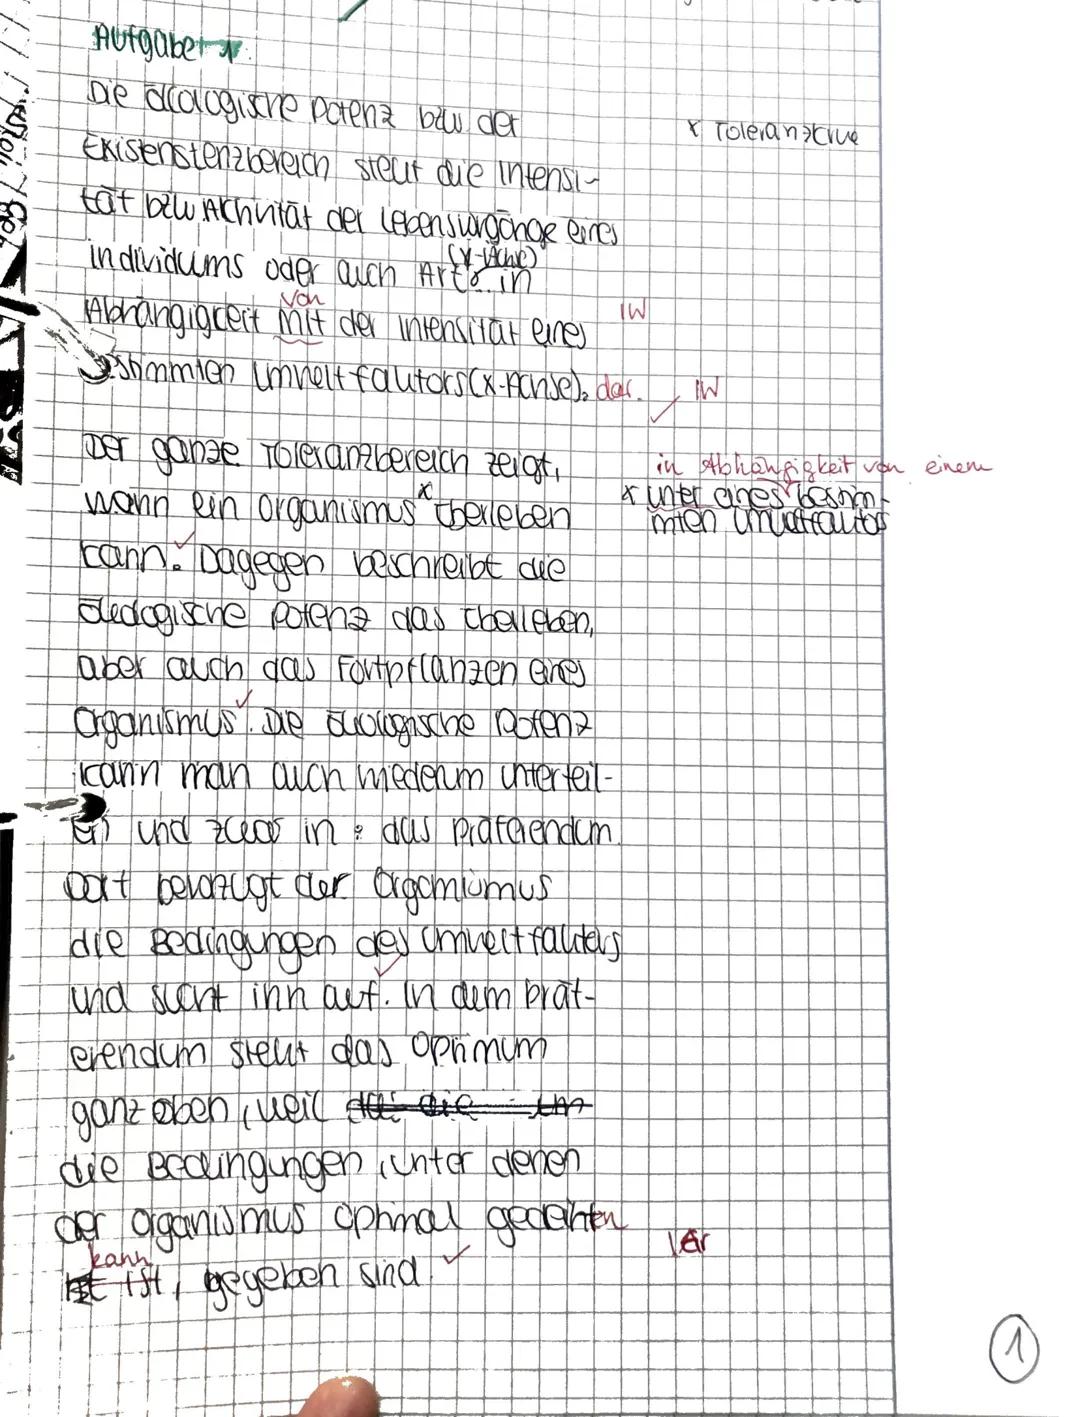 Aufgabe 1
Die ökologische Potenz bzw der
x Toleranzkrue
Existenstenzbereich stellt die Intensi-
tät bzw Aktivität der Lebensvorgänge eines
(Y-Achse)
individums oder auch Art in
von
Abhängigkeit mit der Intensität eines
IW
stimmten Umweltfaktors (X-Achse). dar. IW
Der ganze Toleranzbereich zeigt,
in Abhängigkeit von einem
wann ein Organismus x überleben
x unter eines bestim-
mten Umweltfaktor
kann. Dagegen beschreibt die
ökologische Potenz das überleben,
aber auch das Fortpflanzen eines
Organismus. Die ökologische Potenz
kann man auch wiederum unterteil-
en und zwar in: das Präferendum.
Dort bevorzugt der Organismus
die Bedingungen des Umweltfaktors
und sucht ihn auf. In dem Prät-
erendum stellt das Optimum
ganz oben, weil
die Bedingungen, unter denen
der Organismus optimal gedeihten
Gr
kann
ist, gegeben sind.
1